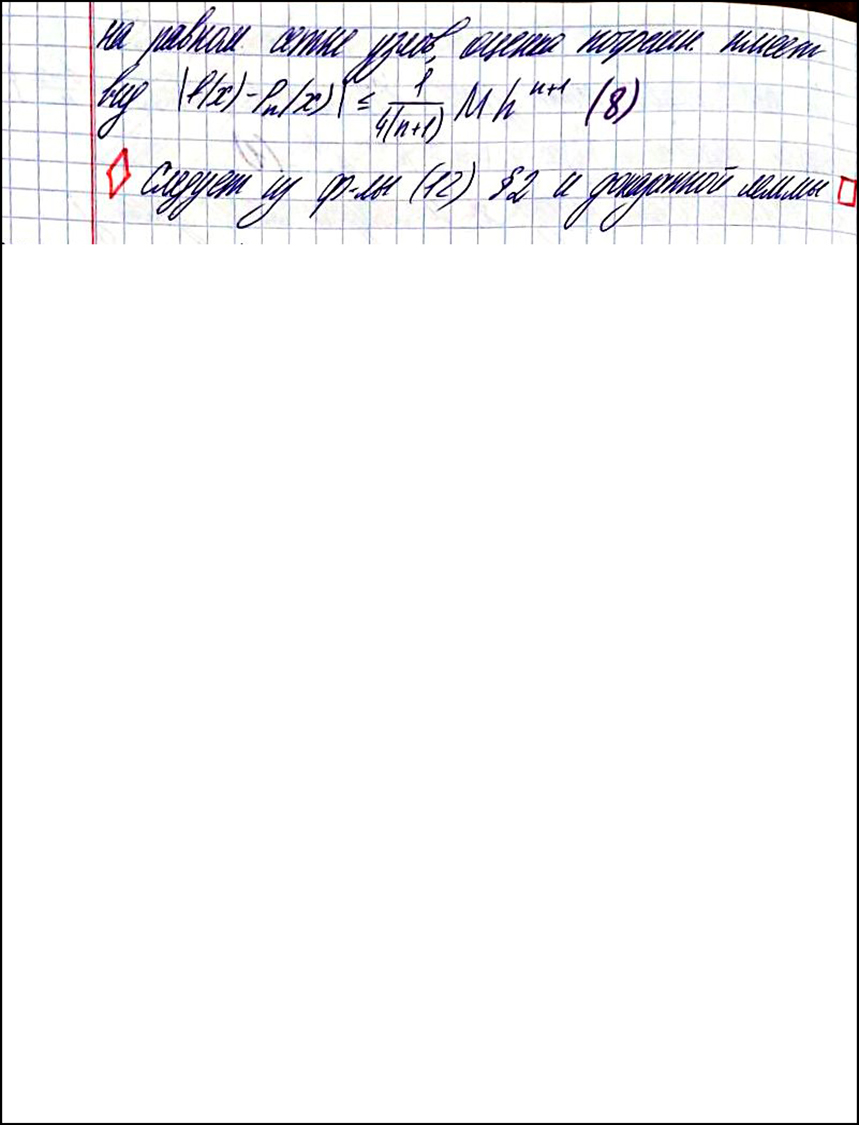 на равном. сетке узлов, оценка погрешн. имеет
вид |f(x) - Pn(x)| ≤ 1/(4(n+1)) M h^(n+1) (8)
Следует из ф-лы (12) §2 и доказанной леммы